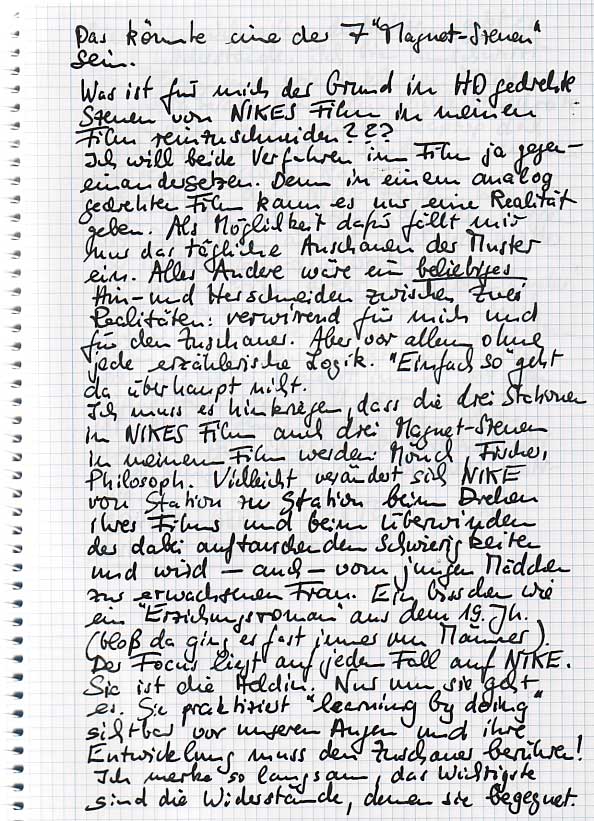 Das könnte eine der 7 "Magnet-Szenen"
sein.
Was ist für mich der Grund in HD gedrehte
Szenen von NIKES Film in meinen
Film reinzuschneiden???
Ich will beide Verfahren im Film ja gegen-
einandersetzen. Denn in einem analog
gedrehten Film kann es nur eine Realität
geben. Als Möglichkeit dafür fällt mir
nur das tägliche Anschauen der Muster
ein. Alles Andere wäre ein beliebiges
Hin- und Herschneiden zwischen zwei
Realitäten: verwirrend für mich und
für den Zuschauer. Aber vor allem ohne
jede erzählerische Logik. "Einfach so" geht
da überhaupt nicht.
Ich muss es hinkriegen, dass die drei Stationen
in NIKES Film auch drei Magnet-Szenen
in meinem Film werden: Mönch, Fischer,
Philosoph. Vielleicht verändert sich NIKE
von Station zu Station beim Drehen
ihres Films und beim Überwinden
der dabei auftauchenden Schwierigkeiten
und wird – auch – vom jungen Mädchen
zur erwachsenen Frau. Ein bisschen wie
ein "Erziehungsroman" aus dem 19. Jh.
(bloß da ging es fast immer um Männer).
Der Focus liegt auf jeden Fall auf NIKE.
Sie ist die Heldin. Nur um sie geht
es. Sie praktiziert "learning by doing"
sichtbar vor unseren Augen und ihre
Entwicklung muss den Zuschauer berühren!
Ich merke so langsam, das Wichtigste
sind die Widerstände, denen sie begegnet.